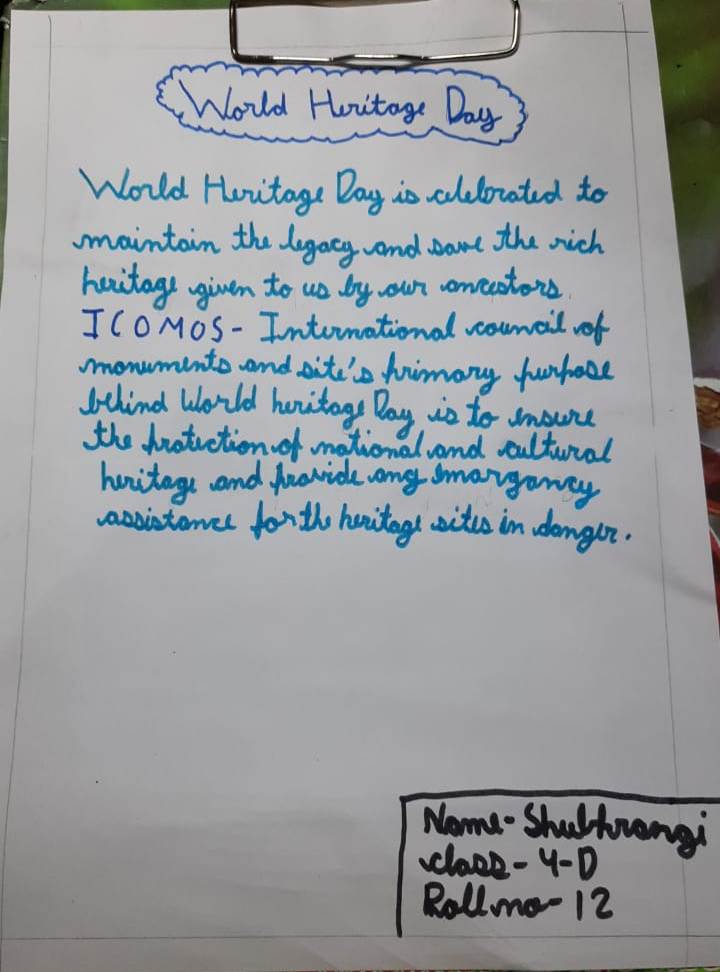 World Heritage Day
World Heritage Day is celebrated to
maintain the legacy and save the rich
heritage given to us by our ancestors.
ICOMOS- International council of
monuments and site's primary purpose
behind World heritage Day is to ensure
the protection of national and cultural
heritage and provide any emargancy
assistance for the heritage sites in danger.
Name- Shubhrangi
class- 4-D
Roll no- 12